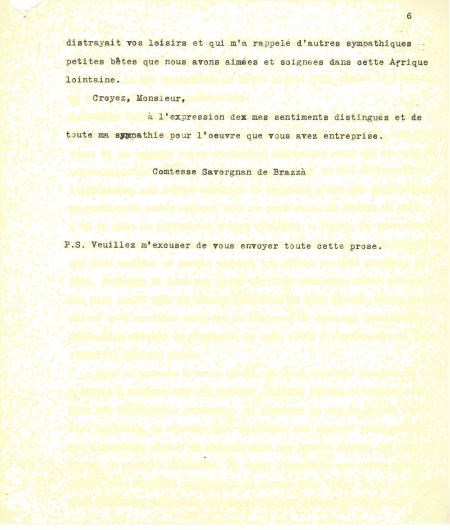 6
distrayait vos loisirs et qui m'a rappelé d'autres sympathiques
petites bêtes que nous avons aimées et soignées dans cette Afrique
lointaine.
Croyez, Monsieur,
à l'expression dex mes sentiments distingués et de
toute ma sympathie pour l'oeuvre que vous avez entreprise.
Comtesse Savorgnan de Brazzà
P.S. Veuillez m'excuser de vous envoyer toute cette prose.